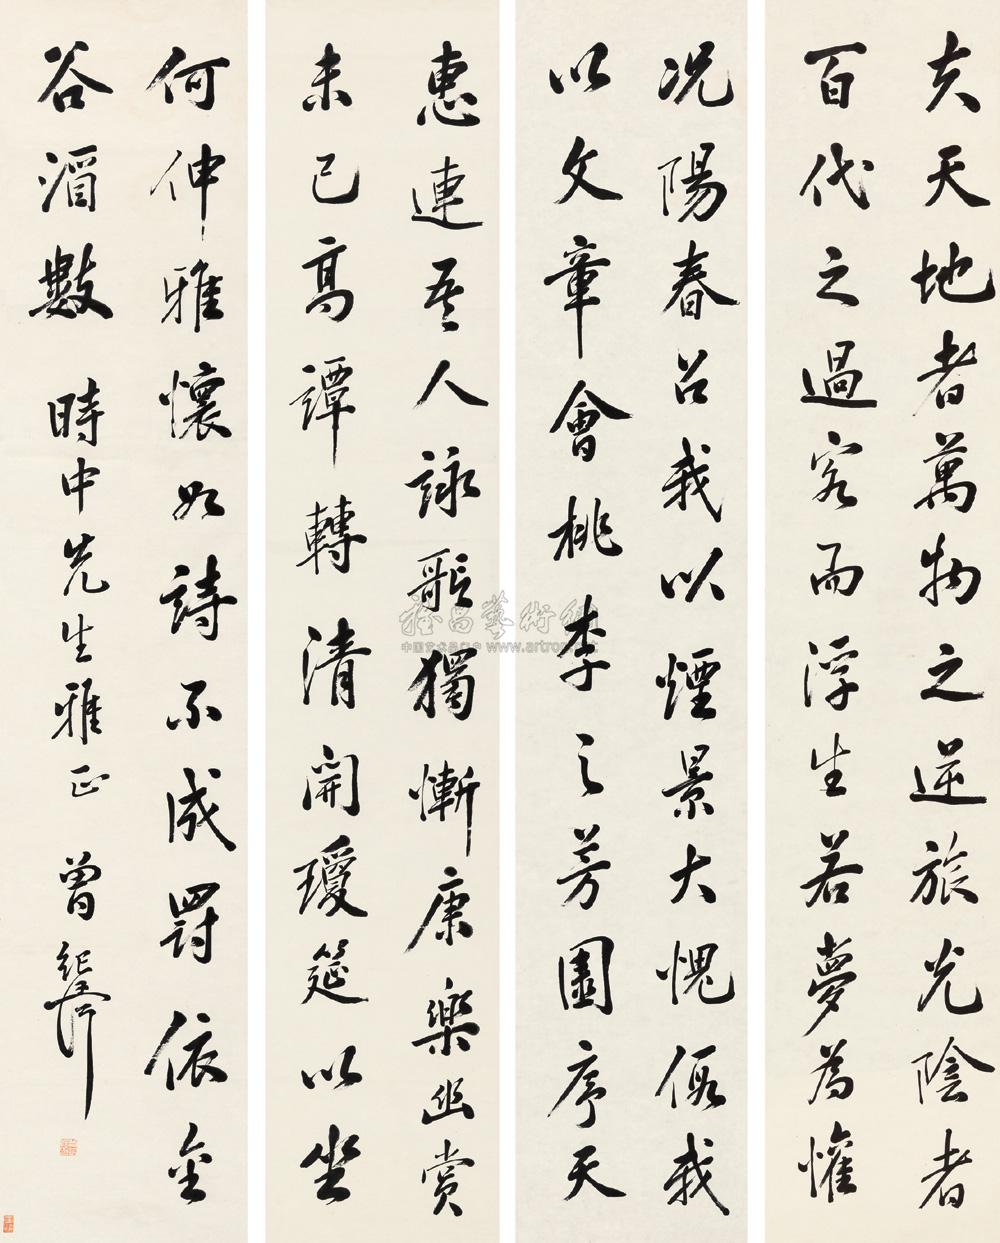 夫天地者萬物之逆旅光陰者
百代之過客而浮生若夢為懽
况陽春召我以煙景大愧假我
以文章會桃李之芳園序天
惠連吾人詠歌獨慚康樂幽賞
未已高譚轉清開瓊筵以坐
何伸雅懷如詩不成罰依金
谷酒數 時中先生雅正 曾紀
雅昌藝術網
中国艺术品门户 www.artron.net